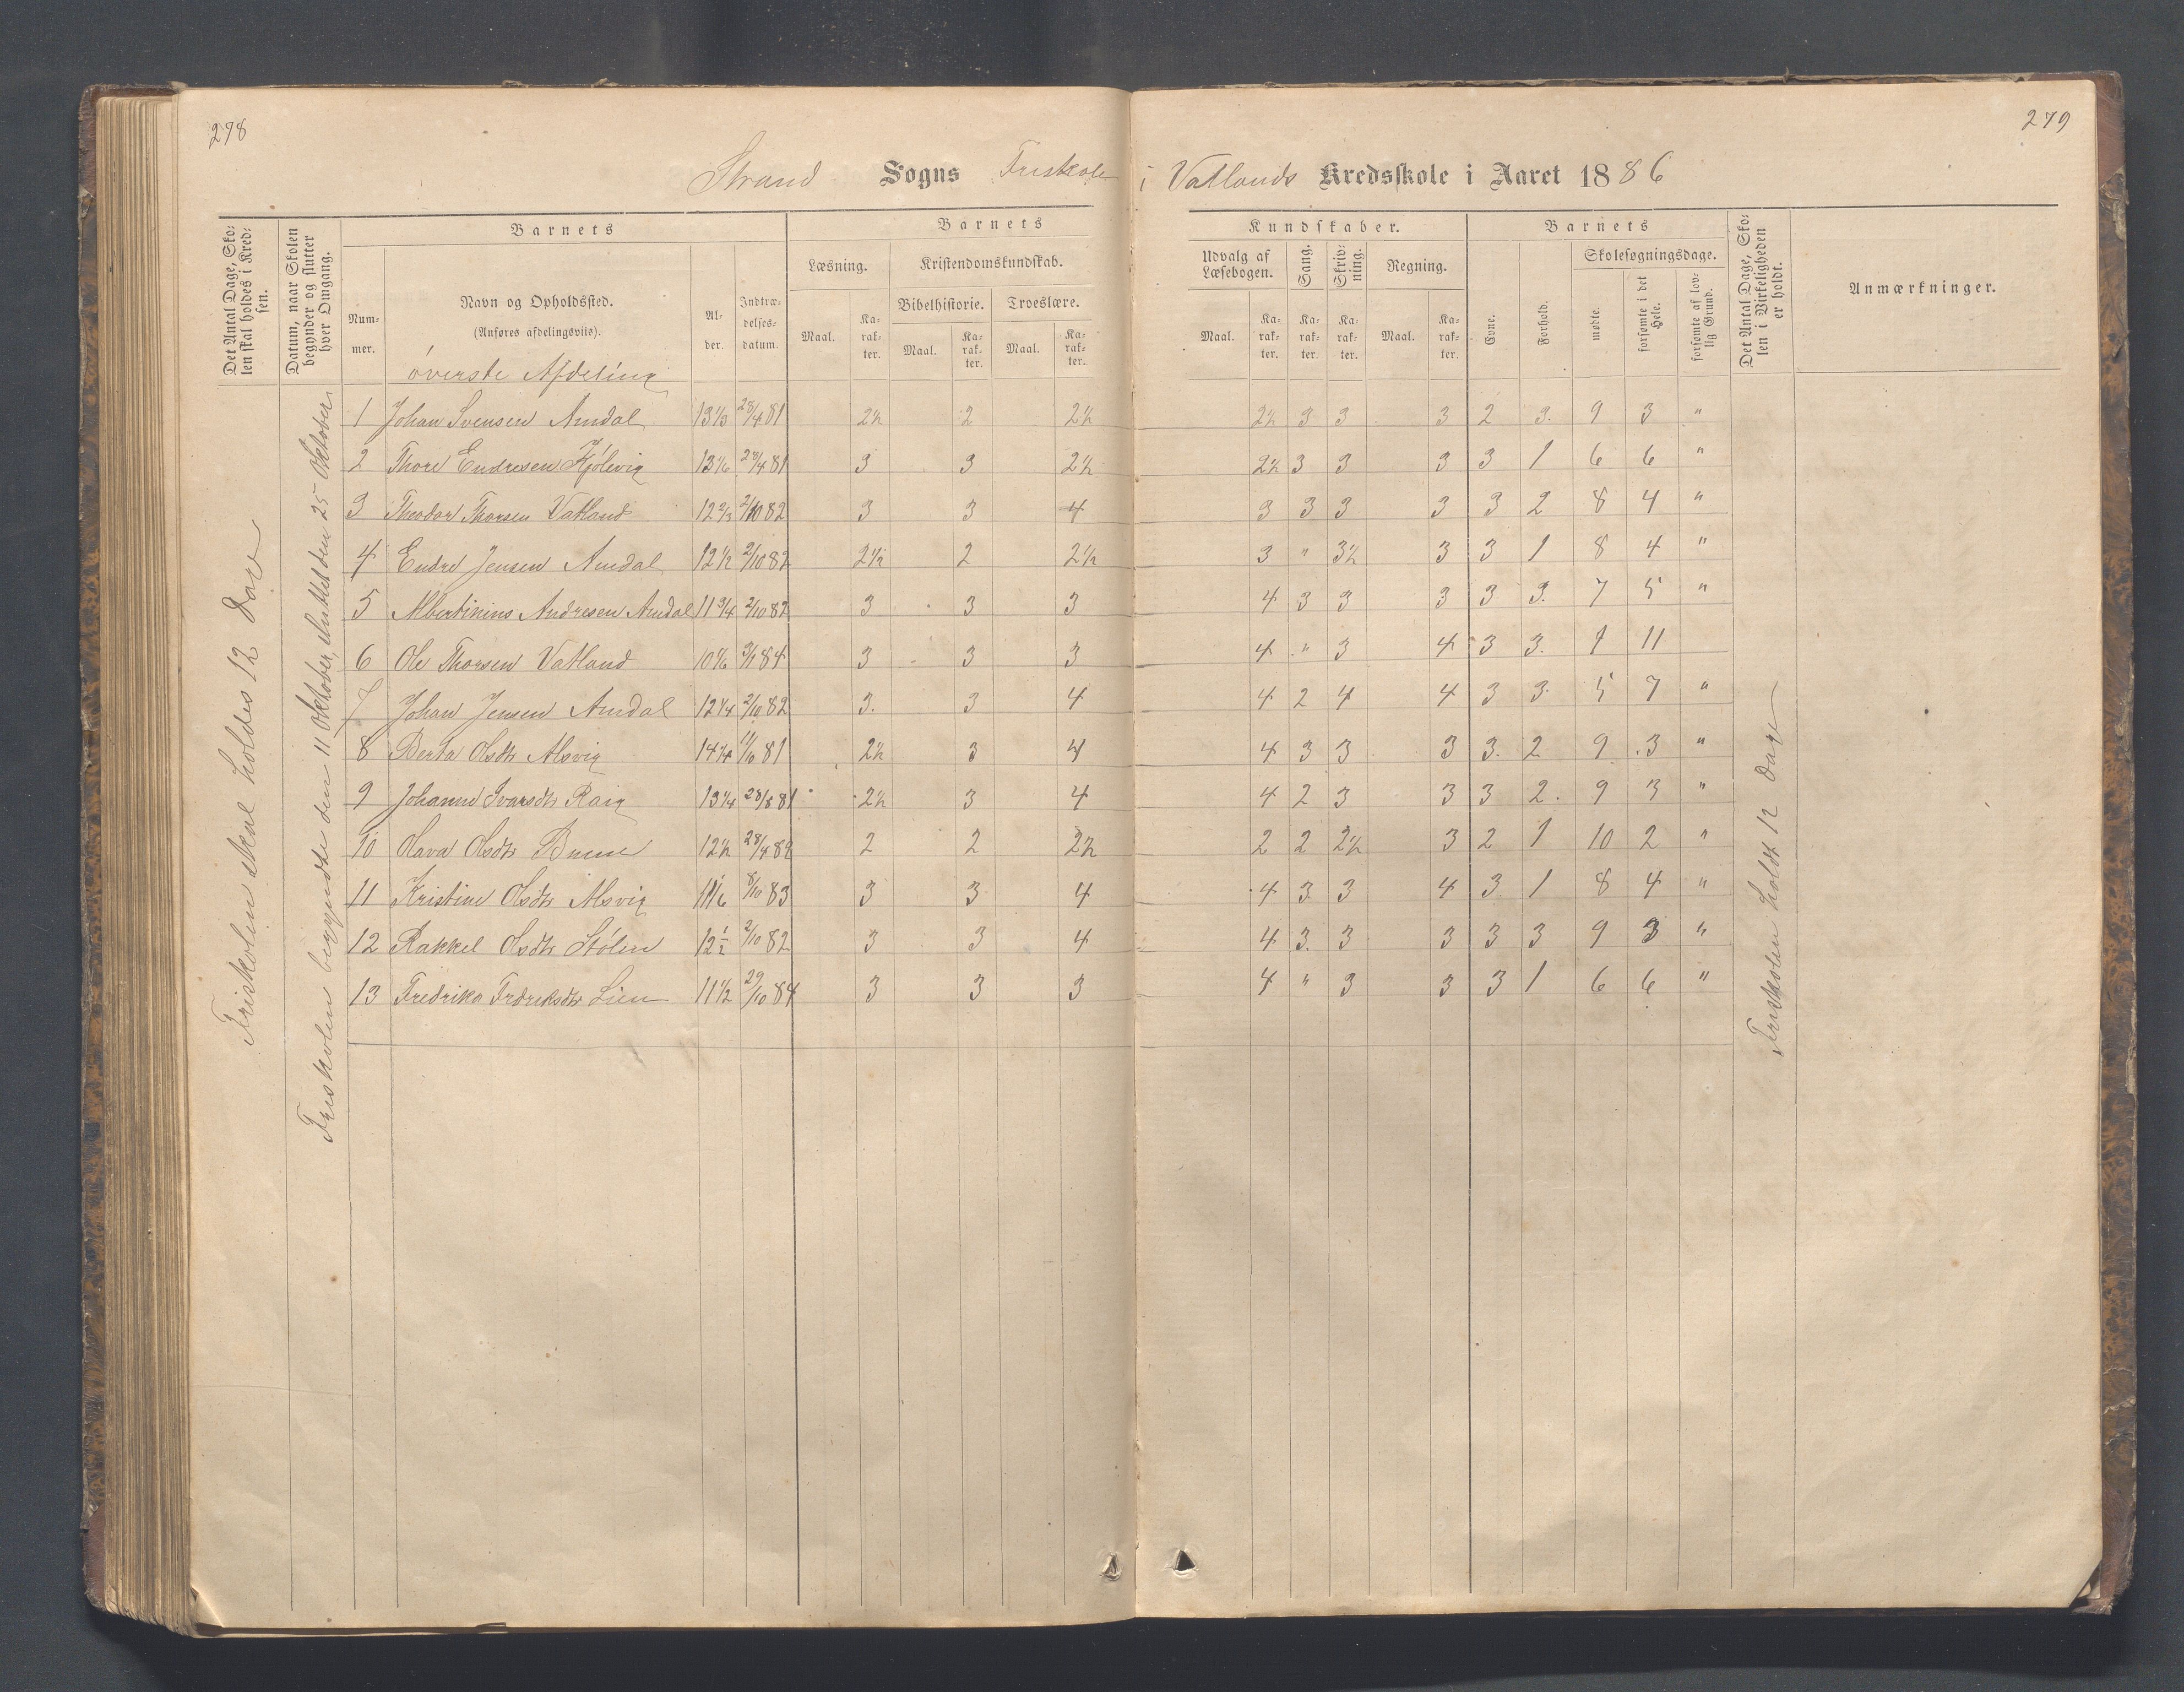 278
279
Strand Sogns Friskole i Vatlands Kredsskole i Aaret 1886
Det Antal Dage, Skolen skal holdes i Kredsen.
Datum, naar Skolen begynder og slutter hver Omgang.
Barnets
Nummer.
Navn og Opholdssted.
(Anføres afdelingsviis).
Alder.
Indtrædelsesdatum.
Barnets
Kundskaber.
Læsning.
Maal.
Karakter.
Kristendomskundskab.
Bibelhistorie.
Maal.
Karakter.
Troeslære.
Maal.
Karakter.
Udvalg af Læsebogen.
Maal.
Karakter.
Sang.
Karakter.
Skrivning.
Karakter.
Regning.
Maal.
Karakter.
Barnets
Evne.
Forhold.
Skolesøgningsdage.
mødte.
forsømte i det Hele.
forsømte af lovlig Grund.
Det Antal Dage, Skolen i Virkeligheden er holdt.
Anmærkninger.
Friskolen skal holdes 12 Dage
Friskolen begyndte den 11 Oktober, sluttet den 25 Oktober
øverste Afdeling
1 Johan Svensen Amdal 13 1/3 28/4 81 2½ 2 2½ 2½ 3 3 3 2 3. 9 3 "
2 Thore Endresen Kjølevig 13 1/6 28/4 81 3 3 2½ 2½ 3 3 3 3 1 6 6 "
3 Theodor Thorsen Vatland 12 2/3 2/10 82 3 3 4 3 3 3 3 3 2 8 4 "
4 Endre Jensen Amdal 12 1/2 2/10 82 2½ 2 2½ 3 " 3½ 3 3 1 8 4 "
5 Albertinius Andresen Amdal 11 3/4 2/10 82 3 3 3 4 3 3 3 3 3. 7 5 "
6 Ole Thorsen Vatland 3 3 3 4 " 3 4 3 3. 1 11
7 Johan Jensen Amdal 12 1/4 2/10 82 3. 3 4 4 2 4 4 3 3. 5 7 "
8 Berta Olsdtr Alsvig 14 1/4 81 2½ 3 4 4 3 3 3 3. 2 9 3 "
9 Johanne Ivarsdtr 13 1/4 28/8 81 2½ 3 4 4 2 3 3 3 2. 9 3 "
10 Olava Olsdtr 12 1/2 28/4 82 2 2 2½ 2 2 2½ 3 2 1 10 2 "
11 Kristine Olsdtr Alsvig 11 1/6 8/10 83 3 3 4 4 3 3 4 3 1 8 4 "
12 Rakkel Olsdtr Stølen 12 1/2 2/10 82 3 3 4 4 3. 3 3 3 3 9 3 "
13 Fredrika Fredriksdtr Lien 11 1/2 29/10 84 3 3 3 4 " 3 3 3 1 6 6 "
Friskolen holdt 12 dage